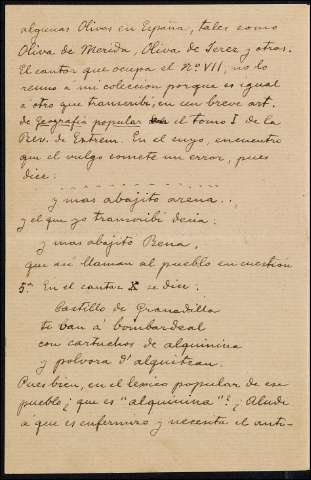 algunas Olivas en España, tales como
Oliva de Merida, Oliva de Jerez y otros.
El cantar que ocupa el Nº VII, no lo
reuno a mi coleccion porque es igual
a otro que transcribí, en un breve art.
de Geografía popular en el tomo I de la
Rev. de Extrem. En el suyo, encuentro
que el vulgo comete un error, pues
dice:
y mas abajito arena...
y el que yo transcribí decia:
y mas abajito Bena,
que así llaman al pueblo en cuestion
5º En el cantar X se dice:
Castillo de Granadilla
te van á bombardeal
con cartuchos de alquinina
y polvora d'alquitran.
Pues bien, en el lexico popular de ese
pueblo ¿que es "alquinina"? ¿Alude
á que es enfermizo y necesita el anti-